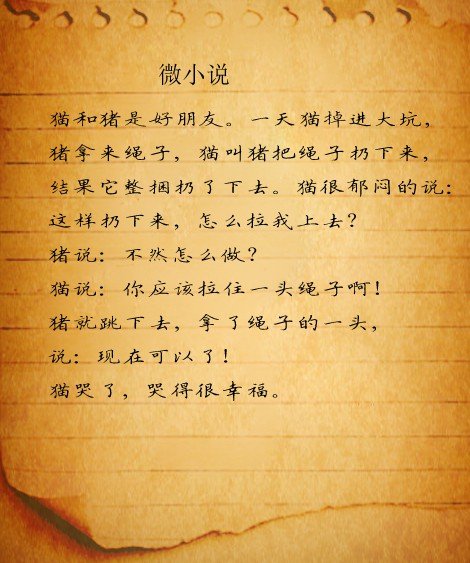 微小说
猫和猪是好朋友。一天猫掉进大坑，
猪拿来绳子，猫叫猪把绳子扔下来，
结果它整捆扔了下去。猫很郁闷的说：
这样扔下来，怎么拉我上去？
猪说：不然怎么做？
猫说：你应该拉住一头绳子啊！
猪就跳下去，拿了绳子的一头，
说：现在可以了！
猫哭了，哭得很幸福。